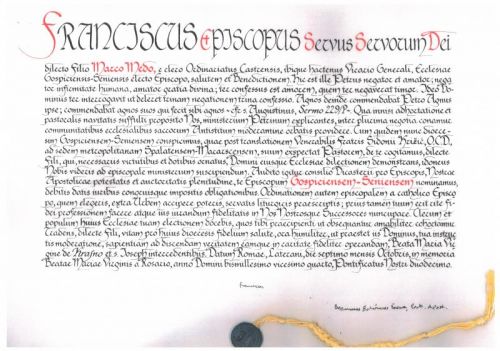 FRANCISCUS EPISCOPUS Servus Servorum Dei
dilecto Filio Marco Medo, e clero Ordinariatus Castrensis, ibique hactenus Vicario Generali, Ecclesiae
Gospiciensis-Seniensis electo Episcopo, salutem et Benedictionem. Hic est ille Petrus negator et amator: nega-
tor infirmitate humana, amator gratia divina; ter confessus est amorem, quem ter negaverat timore. Ideo Domi-
nus ter interrogavit ut deleret ternam negationem trina confessio. Agnos deinde commendabat Petro Agnus
ipse; commendabat agnos suos qui fecit sibi agnos - cfr S. Augustinus, Sermo 229P-. Qua annis adhortatione et
pastoralis navitatis suffulti proposito Nos, ministerium Petrinum explicantes, inter plurima negotia conamur
communitatibus ecclesialibus sacrorum Antistitum moderamine orbatis providere. Cum quidem nunc dioece-
sim Gospiciensem-Seniensem conspicimus, quae post translationem Venerabilis Fratris Sidonii Križić, OCD,
ad sedem metropolitanam Spalatensem-Macarscensem, suum expectat Pastorem, de te cogitamus, dilecte
Fili, qui, necessariis virtutibus et dotibus ornatus, Domini eiusque Ecclesiae dilectionem demonstrans, idoneus
Nobis videris ad episcopale ministerium suscipiendum. Audito igitur consilio Dicasterii pro Episcopis, Nostrae
Apostolicae potestatis et auctoritatis plenitudine, te Episcopum Gospiciensem-Seniensem nominamus,
debitis datis iuribus congruisque impositis obligationibus. Ordinationem autem episcopalem a catholico Episco-
po, quem elegeris, extra Urbem accipere poteris, servatis liturgicis praescriptis; prius tamen tuum erit cite fi-
dei professionem facere atque ius iurandum fidelitatis in Nos Nostrosque Successores nuncupare. Clerum et
populum huius Ecclesiae tuam electionem docebis, quos sibi praecipienti ut obsequantur amabiliter cohortamur.
Credens, dilecte Fili, vitam pro huius dioecesis fidelium salute, ora humiliter, ut praestet iis Dominus, tua insisten-
tis moderatione, sapientiam ad discendam veritatem eamque in caritate fideliter operandam, Beata Maria Vir-
gine de Krasno et S. Joseph intercedentibus. Datum Romae, Laterani, die septimo mensis Octobris, in memoria
Beatae Mariae Virginis a Rosario, anno Domini bismillesimo vicesimo quarto, Pontificatus Nostri duodecimo.
Franciscus